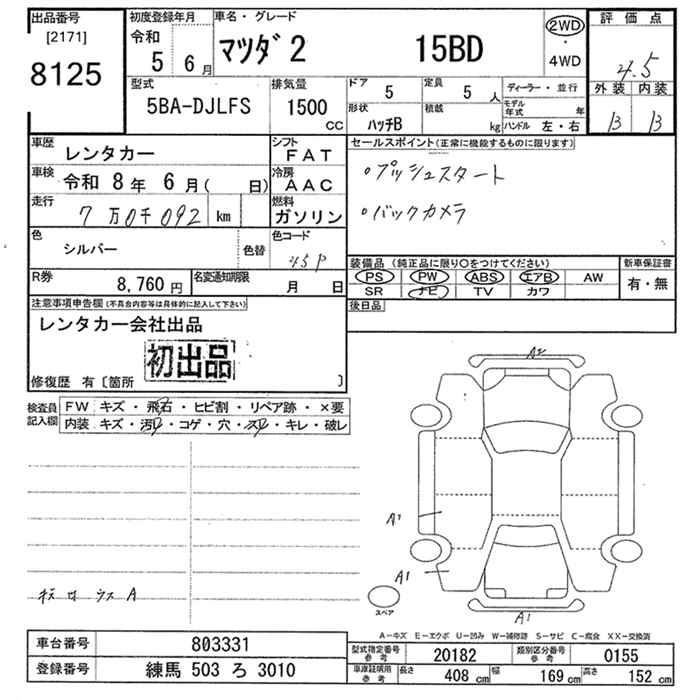 出品番号 初度登録年月 車名・グレード 評価点
[2171] 令和 マツダ2 15BD 2WD
8125 5 6月 ・ 4WD 4.5
型式 排気量 ドア 5 定員 5人 ディーラー・並行 外装 内装
5BA-DJLFS 1500 CC 形状 ハッチB 積載 kg モデル年式 年 B B
ハンドル 左・右
車歴 レンタカー シフト FAT セールスポイント(正常に機能するものに限ります)
車検 令和 8年 6月( 日) 冷房 AAC ・プッシュスタート
走行 7万0千092 km 燃料 ガソリン ・バックカメラ
色 シルバー 色替 色コード 45P
装備品 (純正品に限り○をつけてください) 新車保証書
R券 8,760円 名変通知期限 月 日 PS PW ABS エアB AW 有・無
SR ナビ TV カワ
注意事項申告欄(不具合内容等は具体的に記入して下さい) 後日品
レンタカー会社出品
初出品
修復歴 有〔箇所 〕
A2
検査員記入欄 FW キズ・飛石・ヒビ割・リペア跡・×要
内装 キズ・汚れ・コゲ・穴・スレ・キレ・破レ
A1
A1
スペア
A1
A-キズ E-エクボ U-凹み W-補修跡 S-サビ C-腐食 XX-交換済
車台番号 803331 型式指定番号 参考 20182 類別区分番号 参考 0155
登録番号 練馬 503 ろ 3010 車庫証明用 参考 長さ 408 cm 幅 169 cm 高さ 152 cm